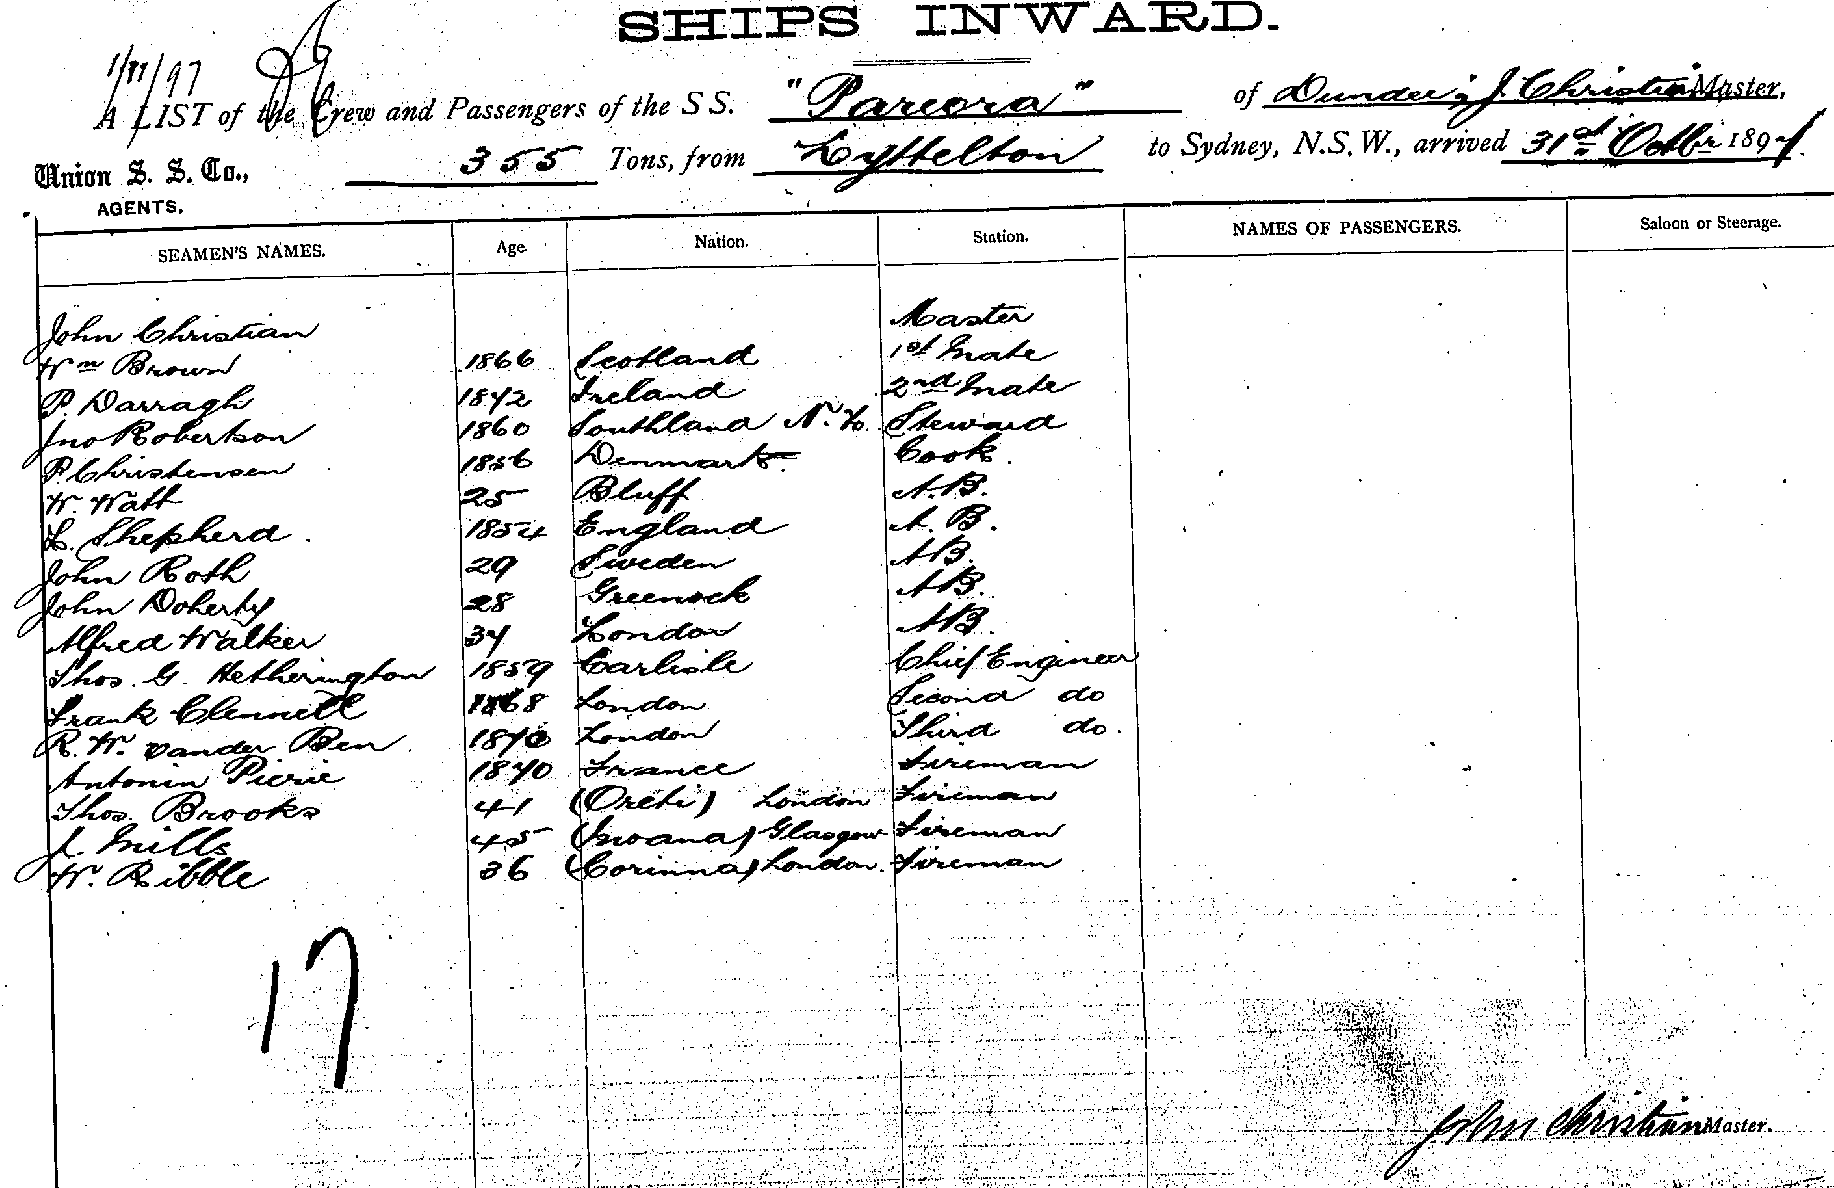 SHIPS INWARD.
1/11/97
A LIST of the Crew and Passengers of the S S. "Pareora" of Dundee; J. Christian Master,
Union S. S. Co., 355 Tons, from Lyttelton to Sydney, N.S.W., arrived 31st Octbr 1897.
AGENTS.
SEAMEN'S NAMES. Age Nation. Station. NAMES OF PASSENGERS. Saloon or Steerage.
John Christian Master
Wm Brown 1866 Scotland 1st Mate
P. Darragh 1842 Ireland 2nd Mate
Jno Robertson 1860 Southland N.Z. Steward
P. Christensen 1856 Denmark. Cook.
W. Watt 25 Bluff A.B.
L. Shepherd. 1854 England A. B.
John Roth 29 Sweden AB.
John Doherty 28 Greenock AB.
Alfred Walker 34 London AB.
Thos. G. Hetherington 1859 Carlisle Chief Engineer
Frank Clennell 1868 London Second do
R. W. vander Ben 1870 London Third do.
Antonin Pierie 1870 France Fireman
Thos. Brooks 41 (Oreti) London Fireman
J. Mills 45 (Moana) Glasgow Fireman
W. Ribble 36 (Corinna) London. Fireman
17
John Christian Master.